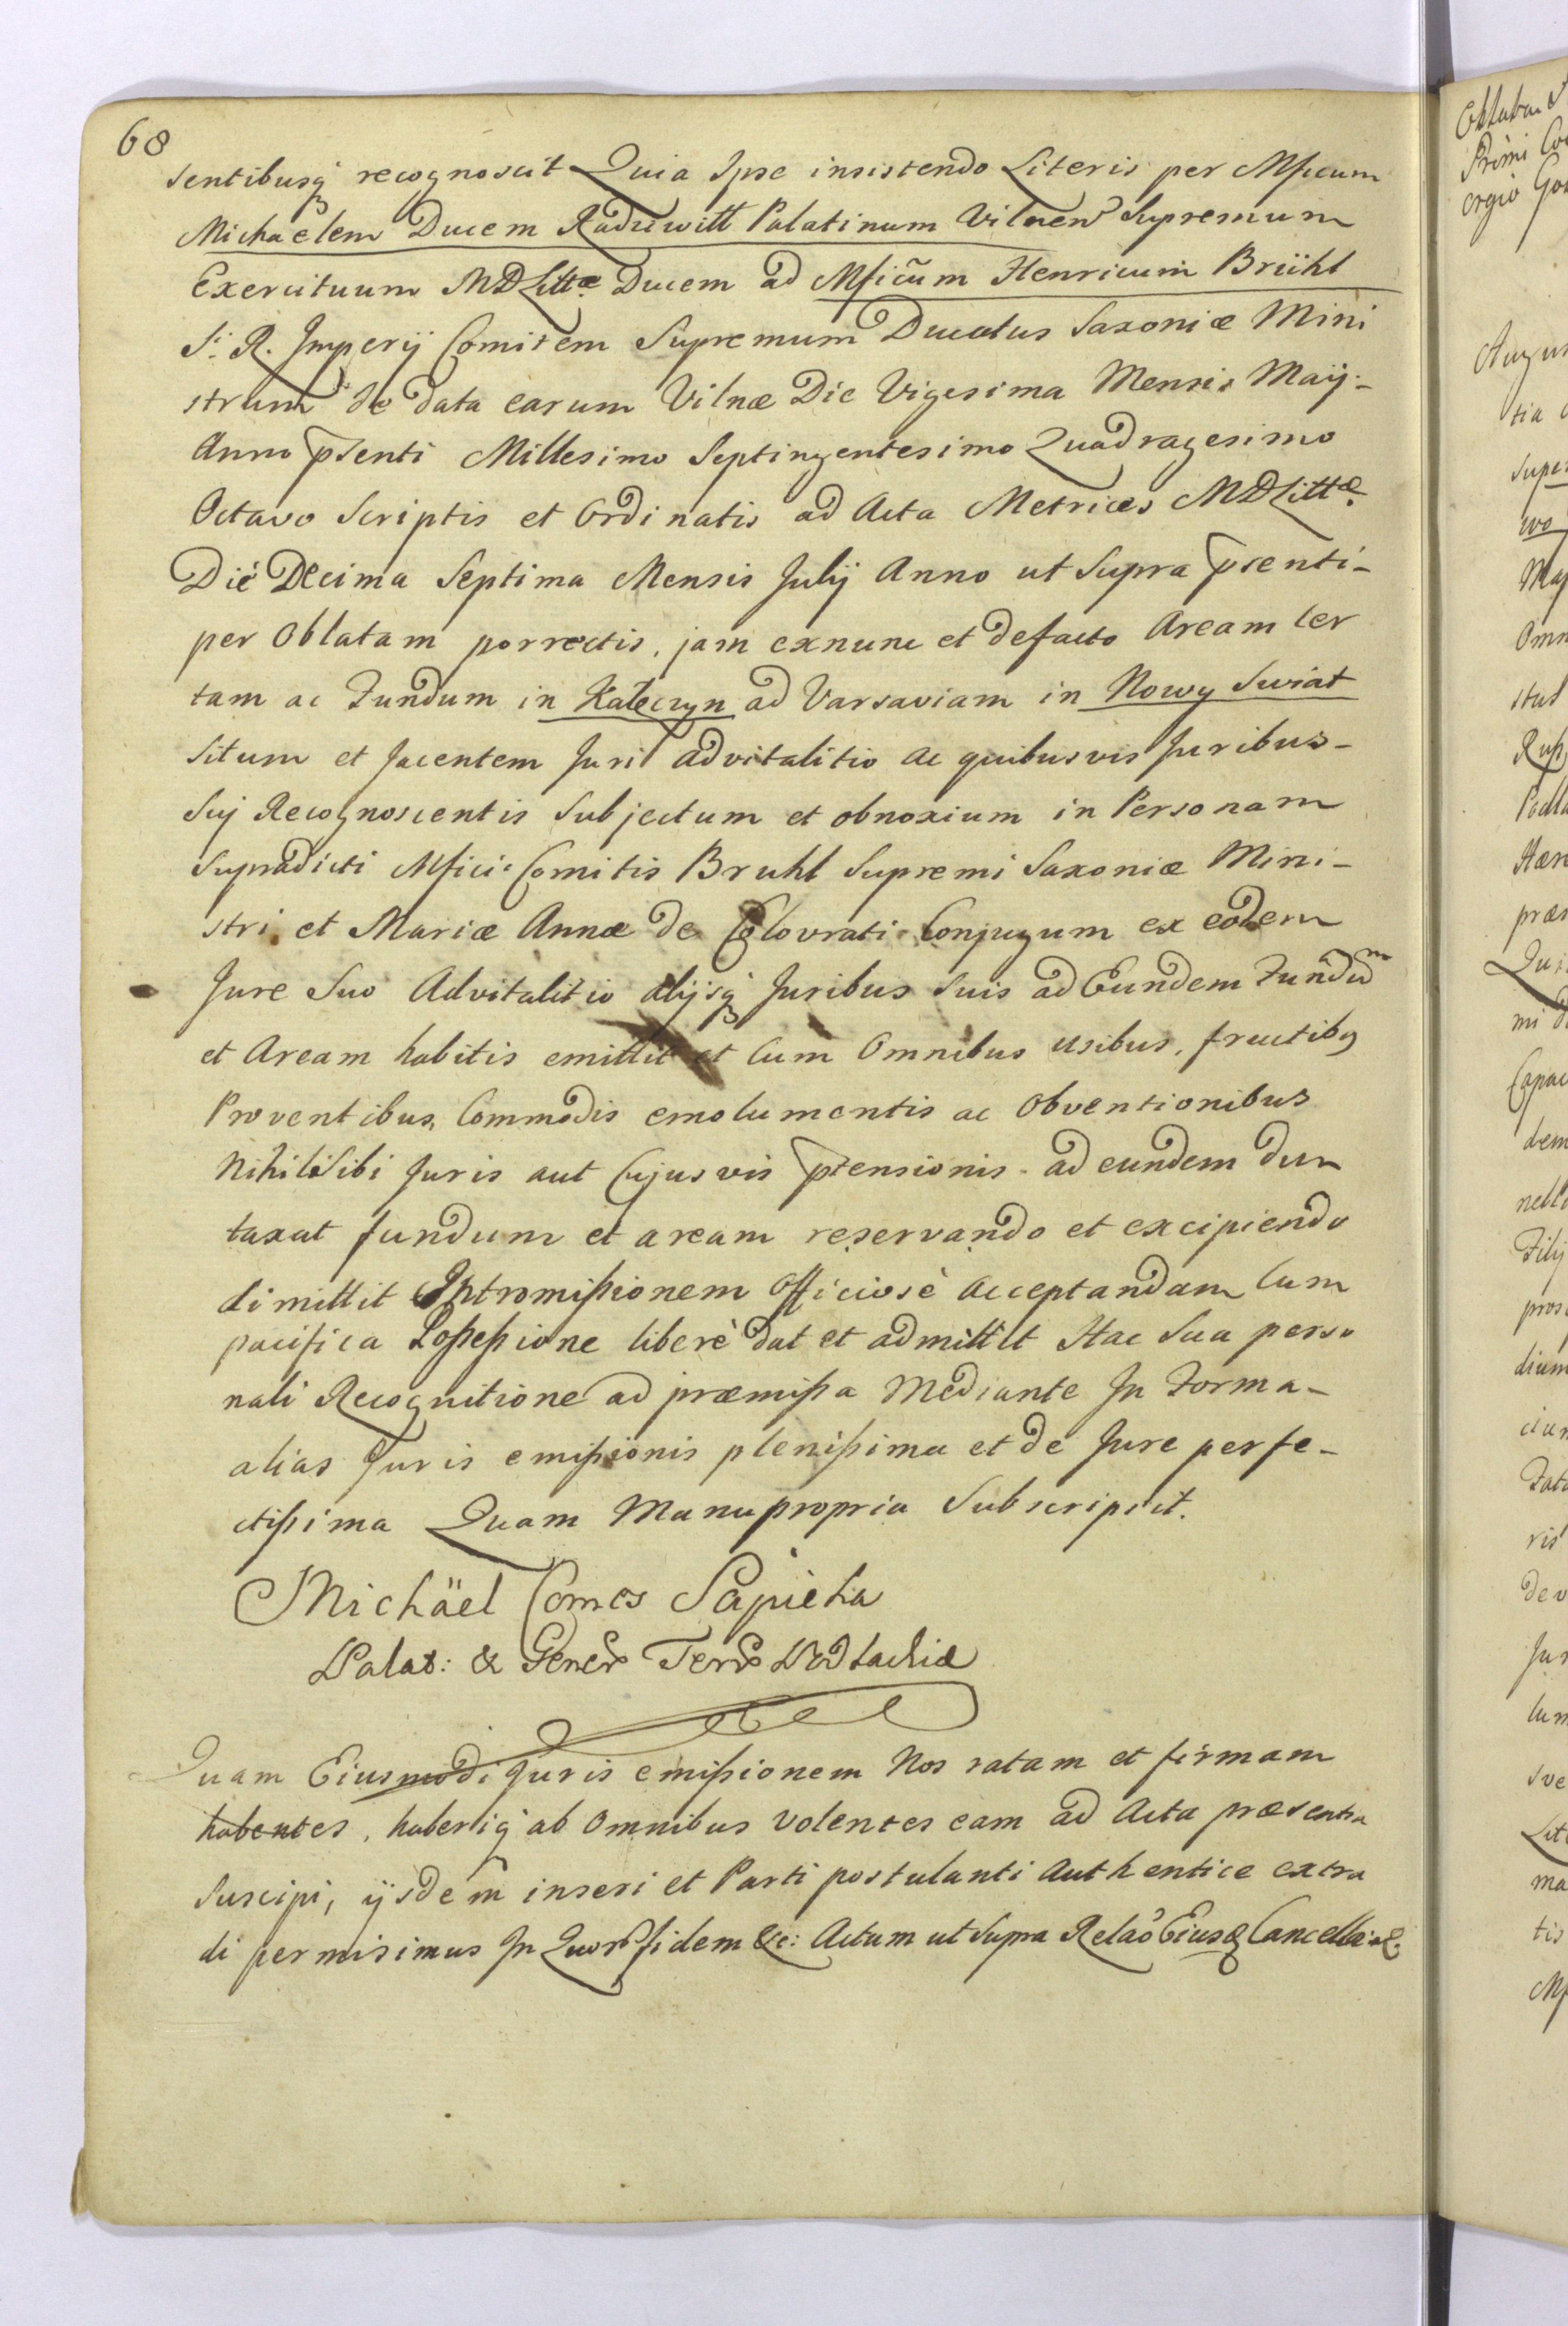 68
sentibusq recognoscit Quia Ipse insistendo Literis per Mficum
Michaëlem Ducem Radziwill Palatinum Vilnen Supremum
Exercituum MDLittæ Ducem ad Mficũm Henricum Brühl
S. R. Imperij Comitem Supremum Ducatus Saxoniæ Mini
strum de data earum Vilnæ Die Vigesima Mensis Maij.-
Anno pſenti Millesimo Septingentesimo Quadragesimo
Octavo Scriptis et Ordinatis ad Acta Metrices MDLittæ
Die Decima Septima Mensis Julij Anno ut Supra pſenti-
per Oblatam porrectis, jam exnunc et defacto Aream Cer
tam ac Fundum in Kałeczyn ad Varsaviam in Nowy Swiat
Situm et Jacentem Juri advitalitio ac quibusvis Juribus-
Sui Recognoscentis Subjectum et obnoxium in Personam
Supradicti Mfici Comitis Bruhl Supremi Saxoniæ Mini-
stri et Mariæ Annæ de Colovrati Conjugum ex eodem
Jure Suo Advitalitio alijsq Juribus Suis ad Eundem Fundum
et Aream habitis emittit et Cum Omnibus usibus, fructibq
Proventibus, Commodis emolumentis ac Obventionibus
Nihil Sibi Juris aut Cujusvis ptensionis - ad eundem dun
taxat fundum et aream reservando et excipiendo
dimittit Intromissionem Officiosè Acceptandam Cum
pacifica Possessione liberè dat et admittit Hac Sua perso
nali Recognitione ad præmissa Mediante In Forma-
alias Juris emissionis plenissima et de Jure perfe-
ctissima Quam Manupropria Subscripsit.
Michäel Comes Sapieha
Palat: & Gener Terr Podlachiæ
Quam Eiusmodi Juris emissionem Nos ratam et firmam
habentes, haberiq ab Omnibus Volentes eam ad Acta præsentia
Suscipi, ijsdem inseri et Parti postulanti Authentice extra
di permisimus In Quor fidem &c: Actum ut Supra Relão Eiusd Cancellar
Oblata
Primi
ergio
Augus
tia
super
evo
Maj
Omn
stul
Rup
Podla
Hæn
præs
Qui
mi
Capac
dem
nell
Filij
pros
dium
cium
Fata
ris
dev
Jur
lum
sve
Lit
ma
tis